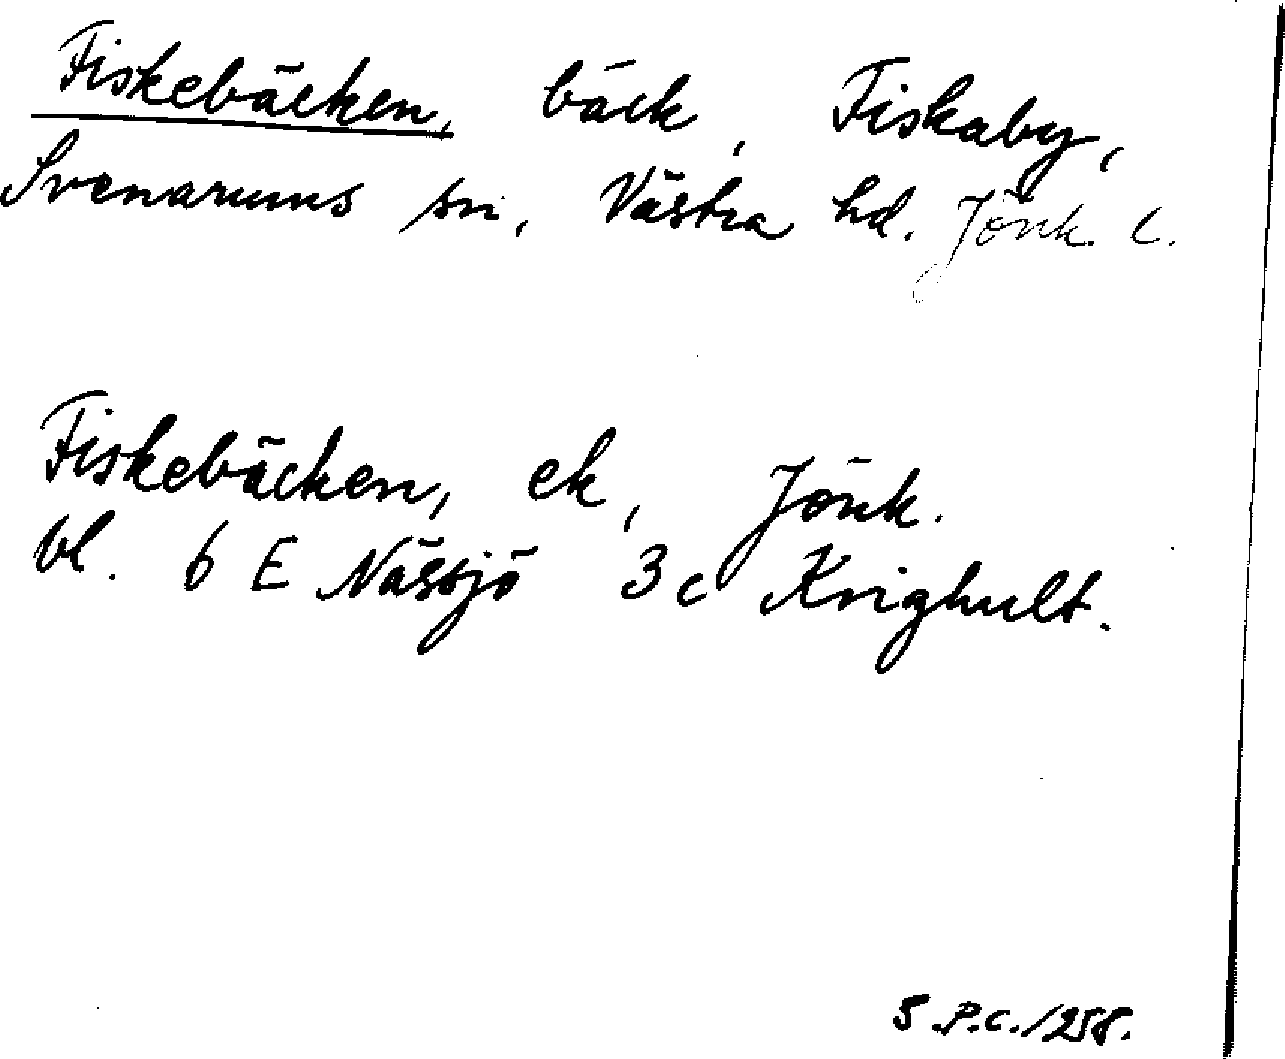 Fiskebäcken, bäck, Fiskaby,
Svenarums sn, Västra hd. Jönk. l.
Fiskebäcken, ek, Jönk.
bl. 6 E Nässjö 3 c Krighult.
5.P.C./258.